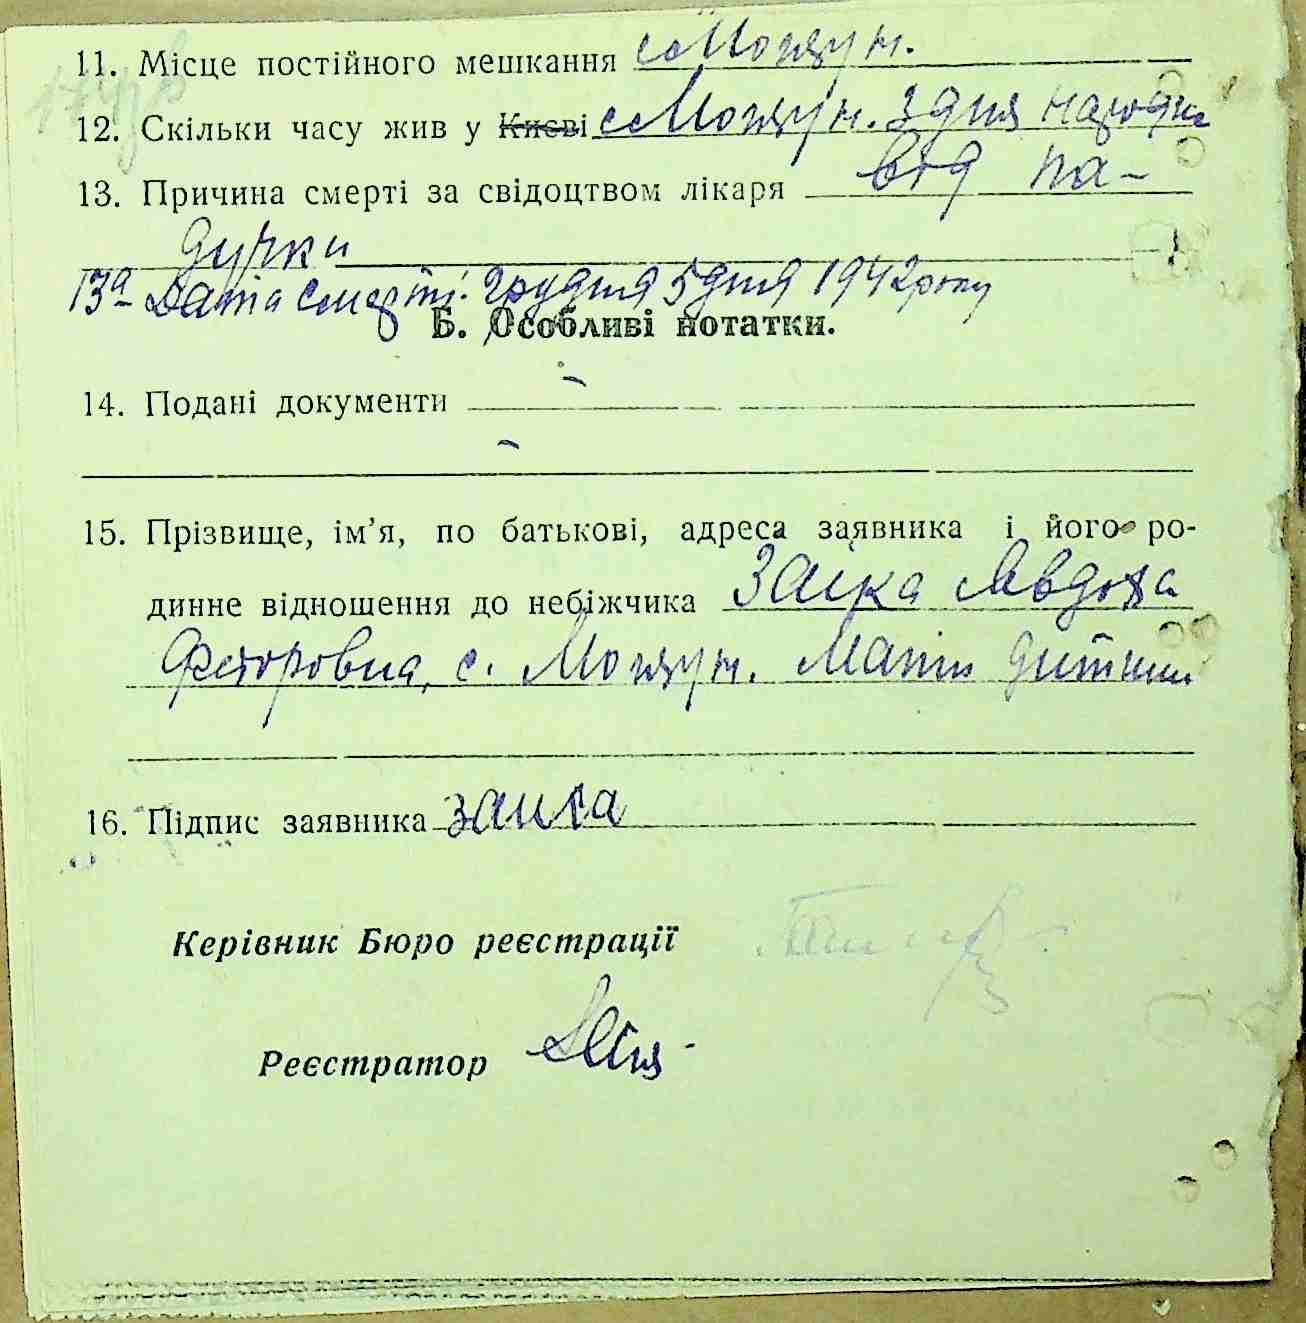 11. Місце постійного мешкання с Мощун.
12. Скільки часу жив у Києві с Мощун. З дня народж
13. Причина смерті за свідоцтвом лікаря від па-
дучки
13а Дата смерті: Грудня 5 дня 1942 року
Б. Особливі нотатки.
14. Подані документи –
–
15. Прізвище, ім’я, по батькові, адреса заявника і його ро-
динне відношення до небіжчика Заика Явдоха
Федоровна, с. Мощун. Мати дитини
16. Підпис заявника заика
Керівник Бюро реєстрації
Реєстратор